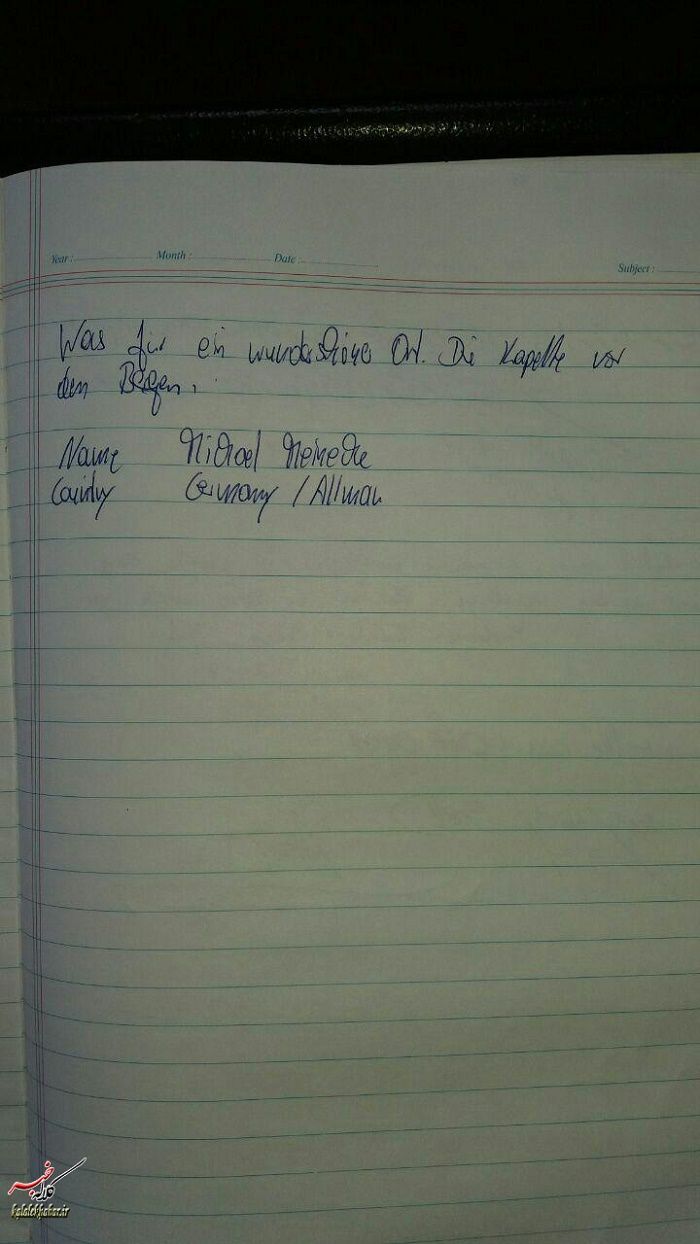 Year : Month : Date :
Subject :
Was für ein wunderschöner Ort. Die Kapelle vor
den Bergen.
Name Michael Meinecke
Country Germany / Allman
خبر
kalalekhabar.ir